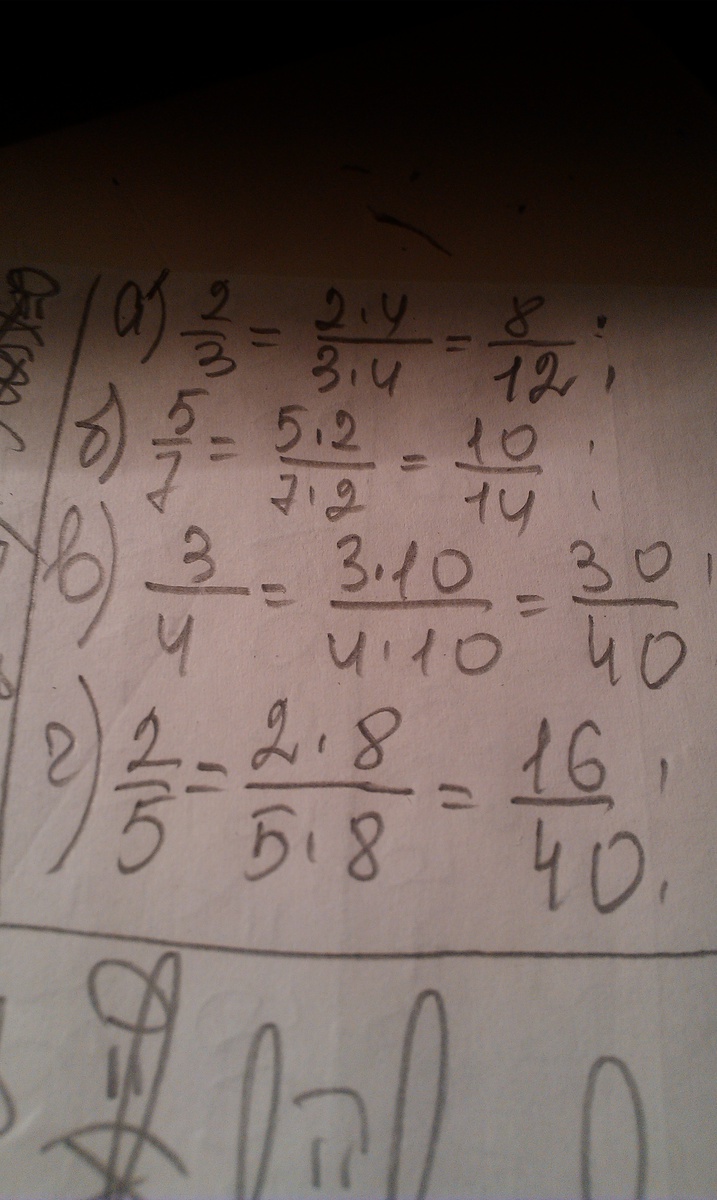 а) 2/3 = 2·4/3·4 = 8/12 ;
б) 5/7 = 5·2/7·2 = 10/14 ;
в) 3/4 = 3·10/4·10 = 30/40
г) 2/5 = 2·8/5·8 = 16/40 ;